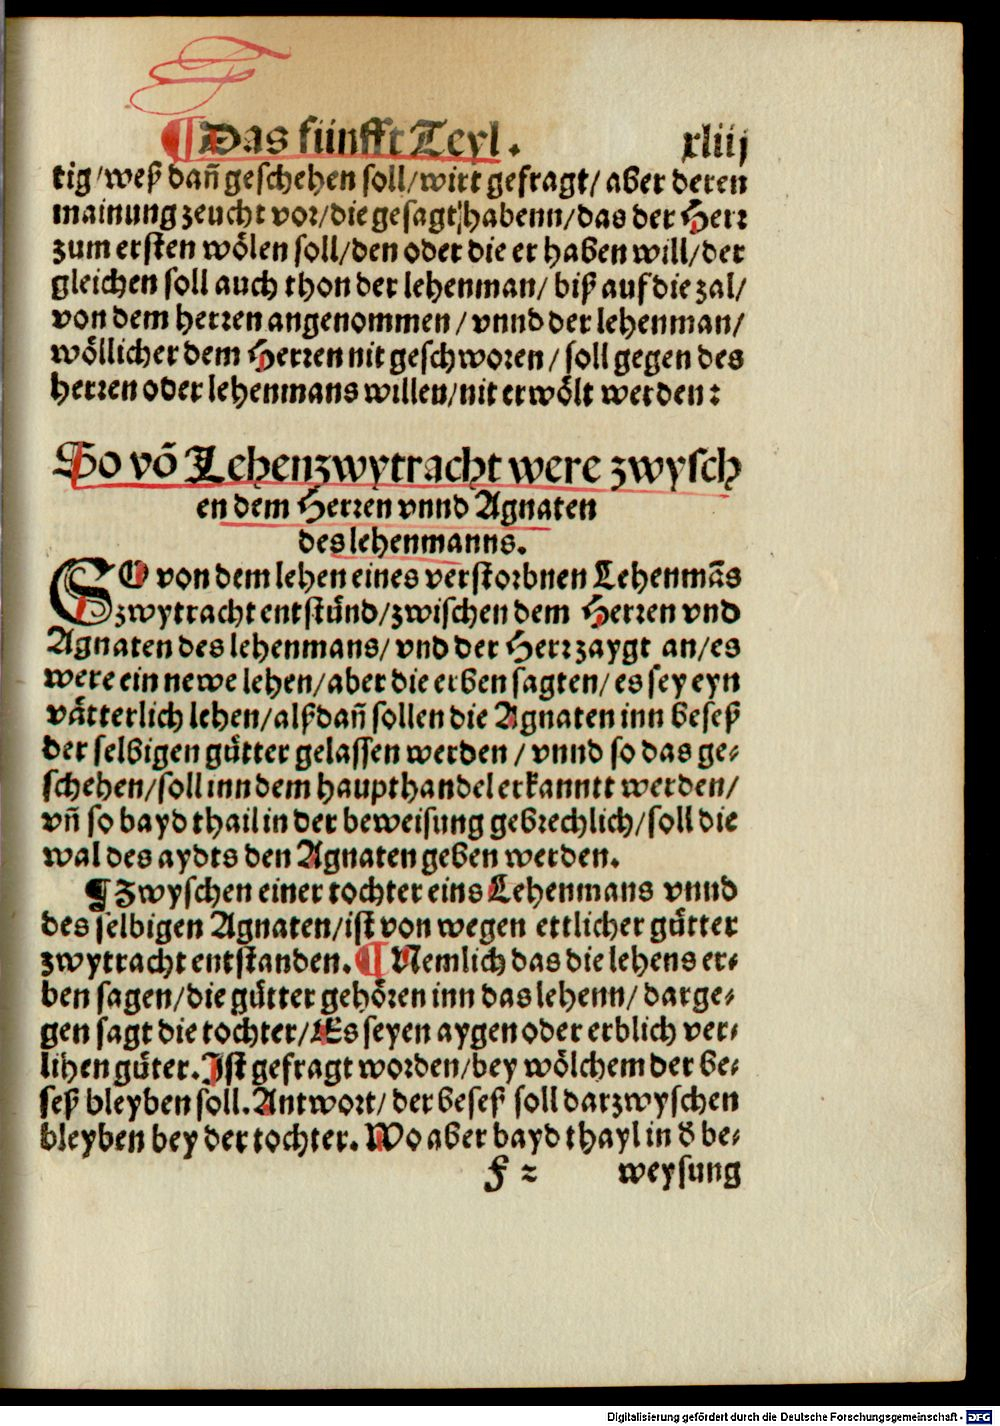 ¶ Das fünfft Teyl. xliij
tig/weß dañ geschehen soll/wirt gefragt/aber deren
mainung zeucht vor/die gesagt habenn/das der Herr
zum ersten wölen soll/den oder die er haben will/der
gleichen soll auch thon der lehenman/biß auf die zal/
von dem herren angenommen/vnnd der lehenman/
wöllicher dem Herren nit geschworen/soll gegen des
herren oder lehenmans willen/nit erwölt werden:
So võ Lehenzwytracht were zwysch
en dem Herren vnnd Agnaten
des lehenmanns.
SO von dem lehen eines verstorbnen Lehenmãs
zwytracht entstünd/zwischen dem Herren vnd
Agnaten des lehenmans/vnd der Herr zaygt an/es
were ein newe lehen/aber die erben sagten/es sey eyn
vätterlich lehen/alßdañ sollen die Agnaten inn beseß
der selbigen gütter gelassen werden/vnnd so das ge⸗
schehen/soll inn dem haupthandel erkanntt werden/
vñ so bayd thail in der beweisung gebrechlich/soll die
wal des aydts den Agnaten geben werden.
¶ Zwyschen einer tochter eins Lehenmans vnnd
des selbigen Agnaten/ist von wegen ettlicher gütter
zwytracht entstanden. ¶ Nemlich das die lehens er⸗
ben sagen/die gütter gehören inn das lehenn/darge⸗
gen sagt die tochter/Es seyen aygen oder erblich ver⸗
lihen güter. Ist gefragt worden/bey wölchem der be⸗
seß bleyben soll. Antwort/der beseß soll darzwyschen
bleyben bey der tochter. Wo aber bayd thayl in d̕ be⸗
f 2 weysung
Digitalisierung gefördert durch die Deutsche Forschungsgemeinschaft - DFG